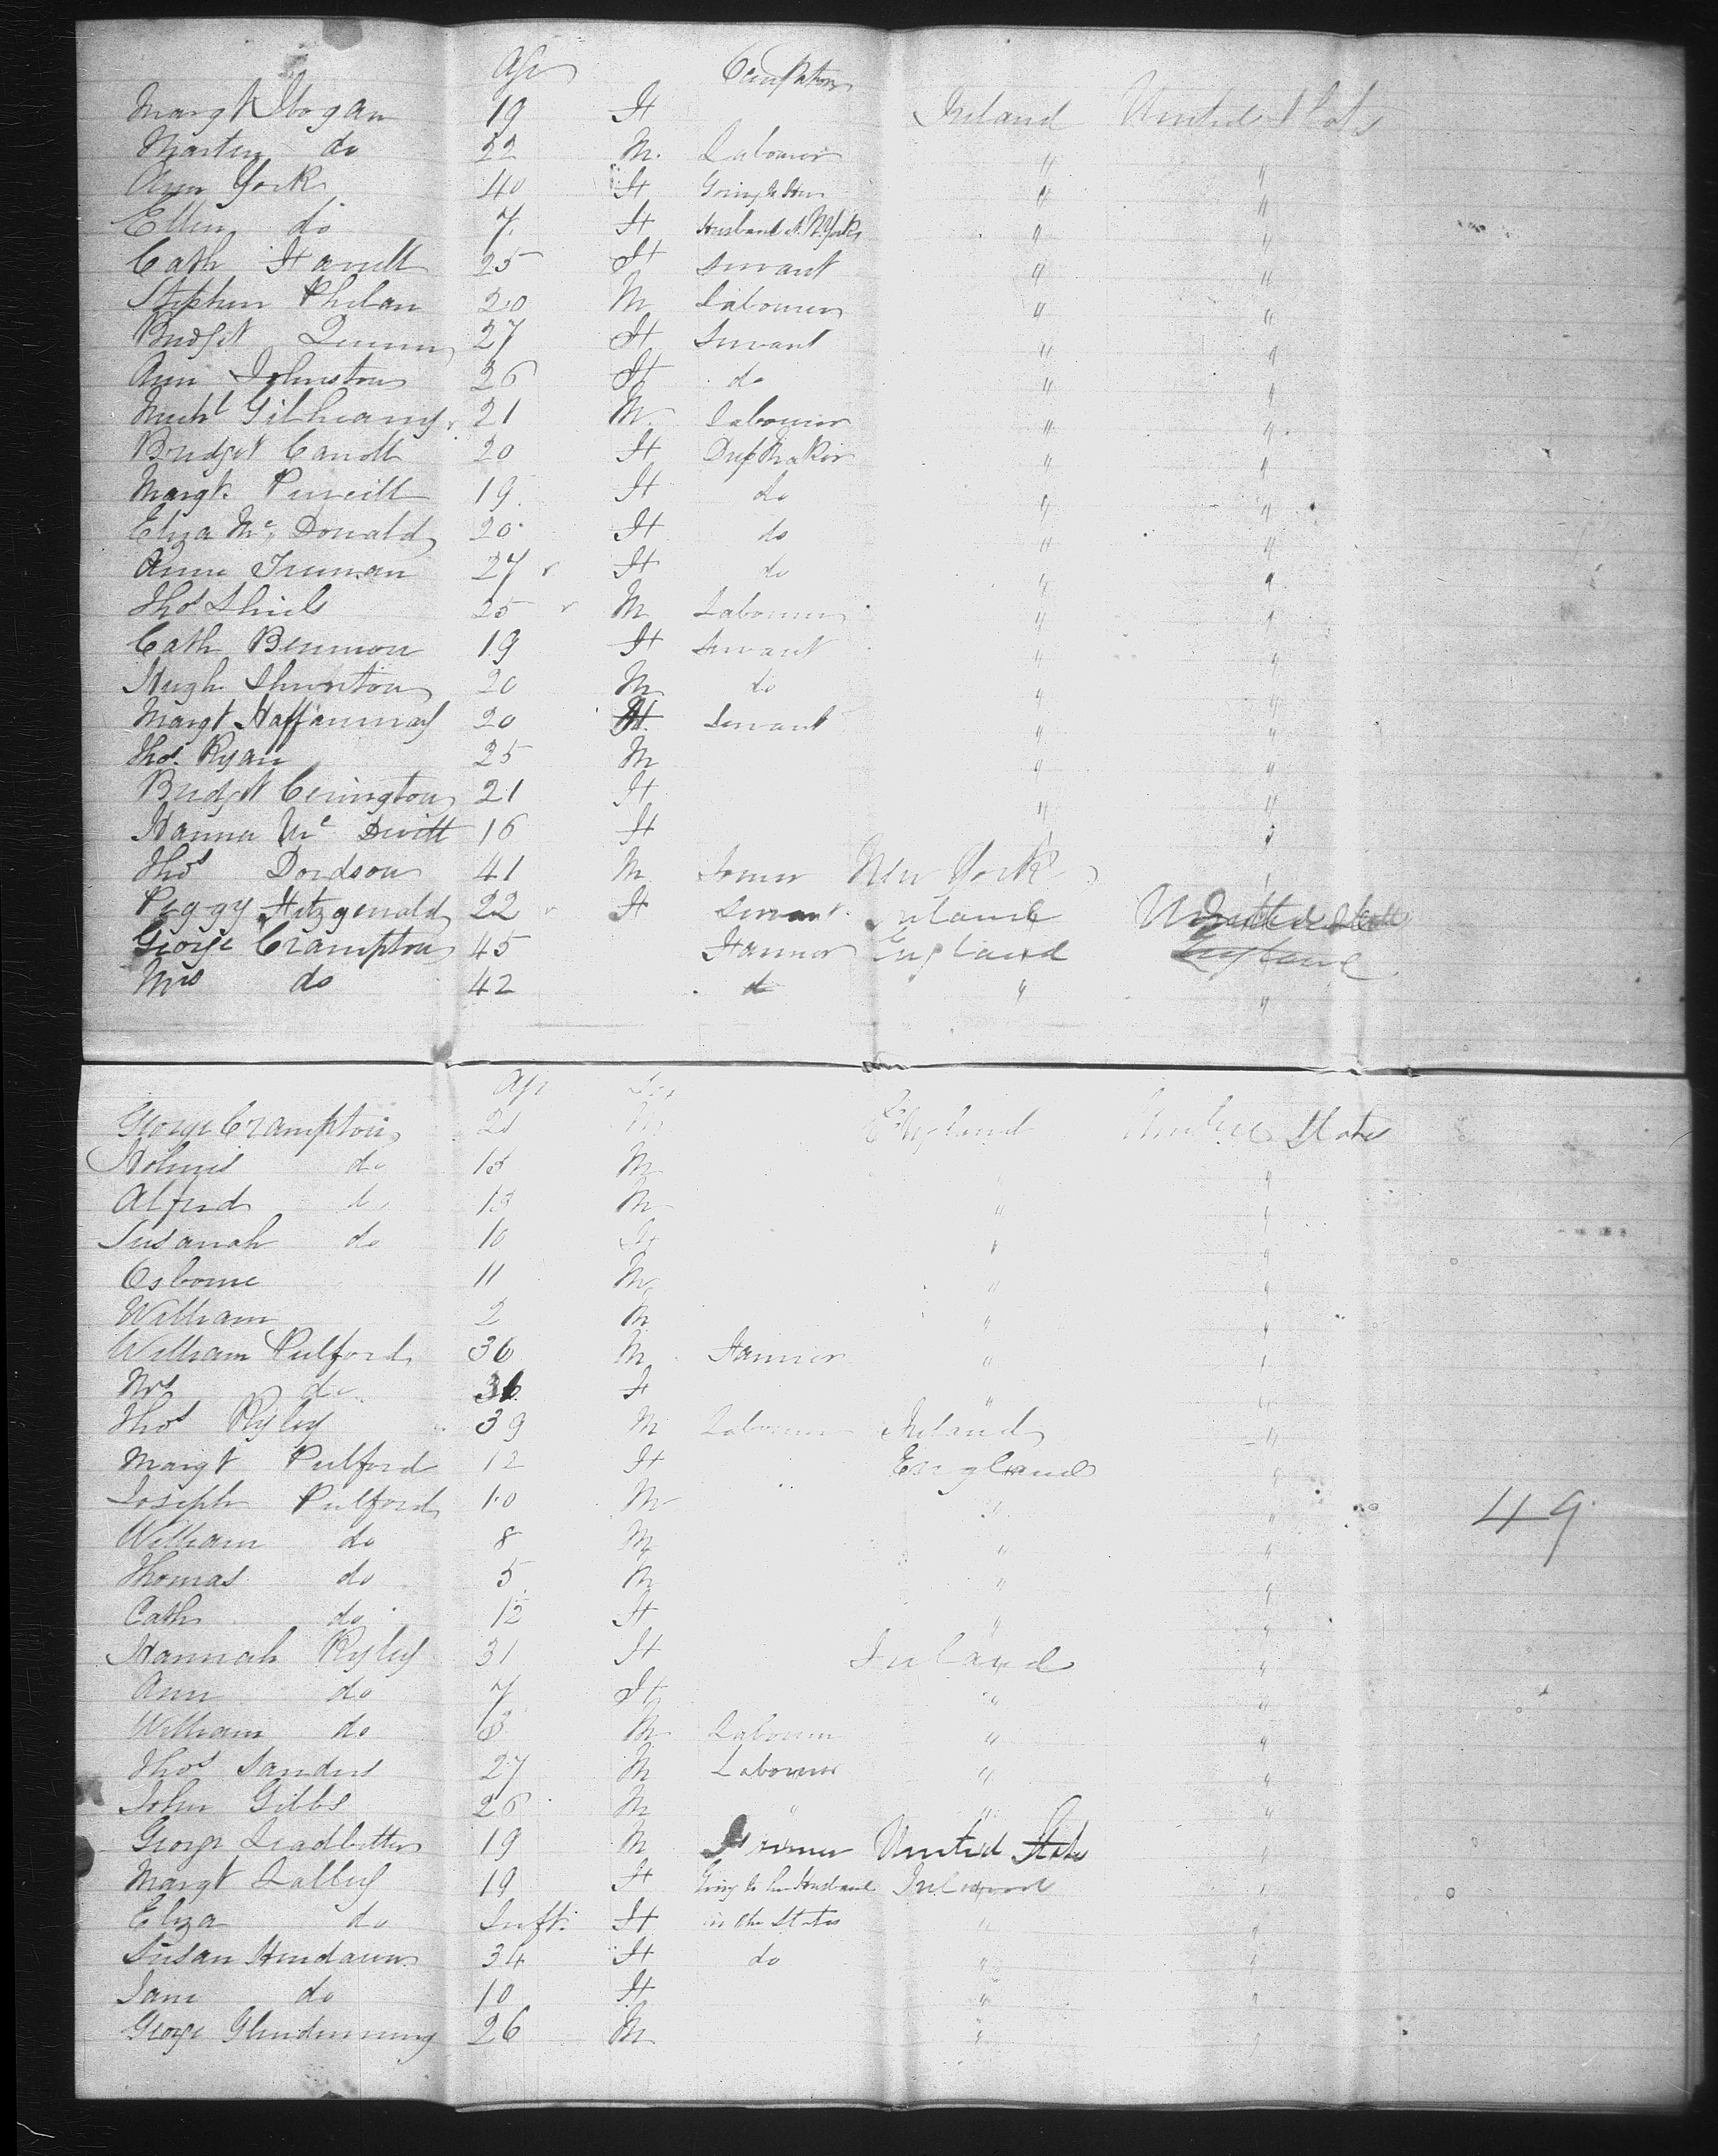 Age Occupation
Margt Hogan 19 F Ireland United States
Martin do 22 M. Labourer " "
Ann York 40 F Going to Her " "
Ellen do 7 F Husband N. York " "
Cath 25 F Servant " "
Stephen Phelan 20 M Labourer " "
Bridget Quinn 27 F Servant " "
Ann Johnston 26 F do " "
Michl 21 M Labourer " "
Bridget 20 F Dressmaker " "
Margt. Purcill 19 F do " "
Eliza Mc Donald 20 F do " "
Anne 27 F do " "
Thos Shiels 25 M Labourer " "
Cath 19 F Servant " "
Hugh 20 M do " "
Margt 20 F. Servant " "
Thos. Ryan 25 M " "
Bridget 21 F " "
Hanna Mc Devitt 16 F "
Thos 41 M New York
Peggy Fitzgerald 22 F Servant Ireland United States
George Crampton 45 Farmer England England
Mrs do 42 do " "
Age Sex
George Crampton 21 M England United States
Holmes do 15 M "
Alfred do 13 M " "
Susanah do 10 F " "
Osborne 11 M " "
William 2 M " "
William Pulford 36 M Farmer " "
Mrs do 36 F " "
Thos Ryley 39 M Labourer Ireland "
Margt Pulford 12 F England "
Joseph Pulford 10 M " " 49
William do 8 M " "
Thomas do 5 M " "
Cath do 12 F " "
Hannah Ryley 31 F Ireland "
Ann do 7 F " "
William do M Labourer " "
Thos Sanders 27 M Labourer " "
John Gibbs 26 M " " "
George Leadbetter 19 M Farmer United States "
Margt 19 F Going to her Husband Ireland "
Eliza do Inft. F in the States " "
Susan 34 F do " "
Jane do 10 F " "
George Glendinning 26 M " "